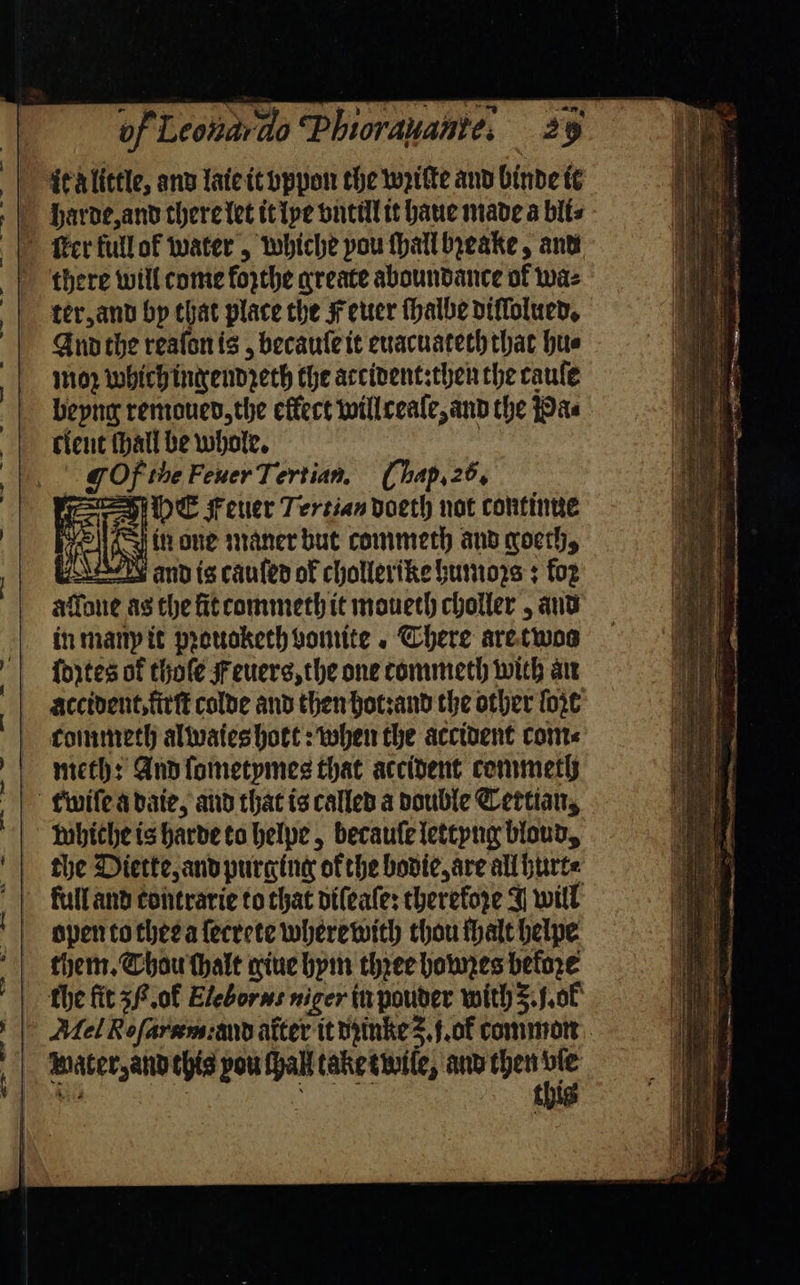 of Leonardo Phiorauante. 29
it a little, and laie it vppon the wriſte and binde it
harde, and there let it lye vntill it haue made a bli-
ſter full of water, whiche you ſhall breake, and
there will come forthe greate aboundance of wa-
ter, and by that place the Feuer ſhalbe diſſolued.
And the reaſon is, becauſe it euacuateth that hu-
mor which ingendreth the accident: then the cauſe
beyng remoued, the effect will ceaſe, and the Pa-
cient ſhall be whole.
¶ Of the Feuer Tertian. Chap. 26.
THE Feuer Tertian doeth not continue
in one maner but commeth and goeth,
and is cauſed of chollerike humors: for
aſſone as the fit commeth it moueth choller, and
in many it prouoketh vomite. There are twoo
ſortes of thoſe Feuers, the one commeth with an
accident, firſt colde and then hot: and the other ſort
commeth alwaies hott: when the accident com-
meth: And ſometymes that accident commeth
twiſe a daie, and that is called a double Tertian,
whiche is harde to helpe, becauſe lettyng bloud,
the Diette, and purging of the bodie, are all hurte-
full and contrarie to that diſeaſe: therefore I will
open to thee a ſecrete wherewith thou ſhalt helpe
them. Thou ſhalt giue hym three howres before
the fit ʒß. of Eleborus niger in pouder with ℥.j. of
Mel Roſarum: and after it drinke ℥.j. of common
water, and this you ſhall take twiſe, and then vſe
this